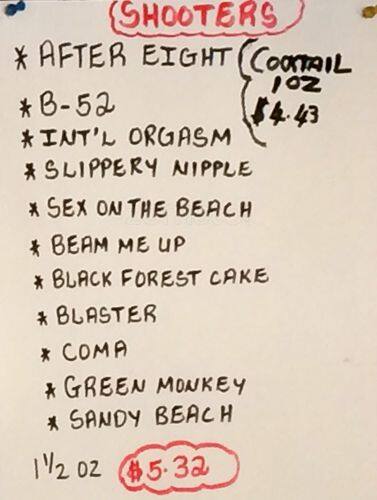 SHOOTERS
* AFTER EIGHT
COCKTAIL
1 OZ
$4.43
* B-52
* INT'L ORGASM
* SLIPPERY NIPPLE
* SEX ON THE BEACH
* BEAM ME UP
* BLACK FOREST CAKE
* BLASTER
* COMA
* GREEN MONKEY
* SANDY BEACH
1 1/2 OZ $5.32